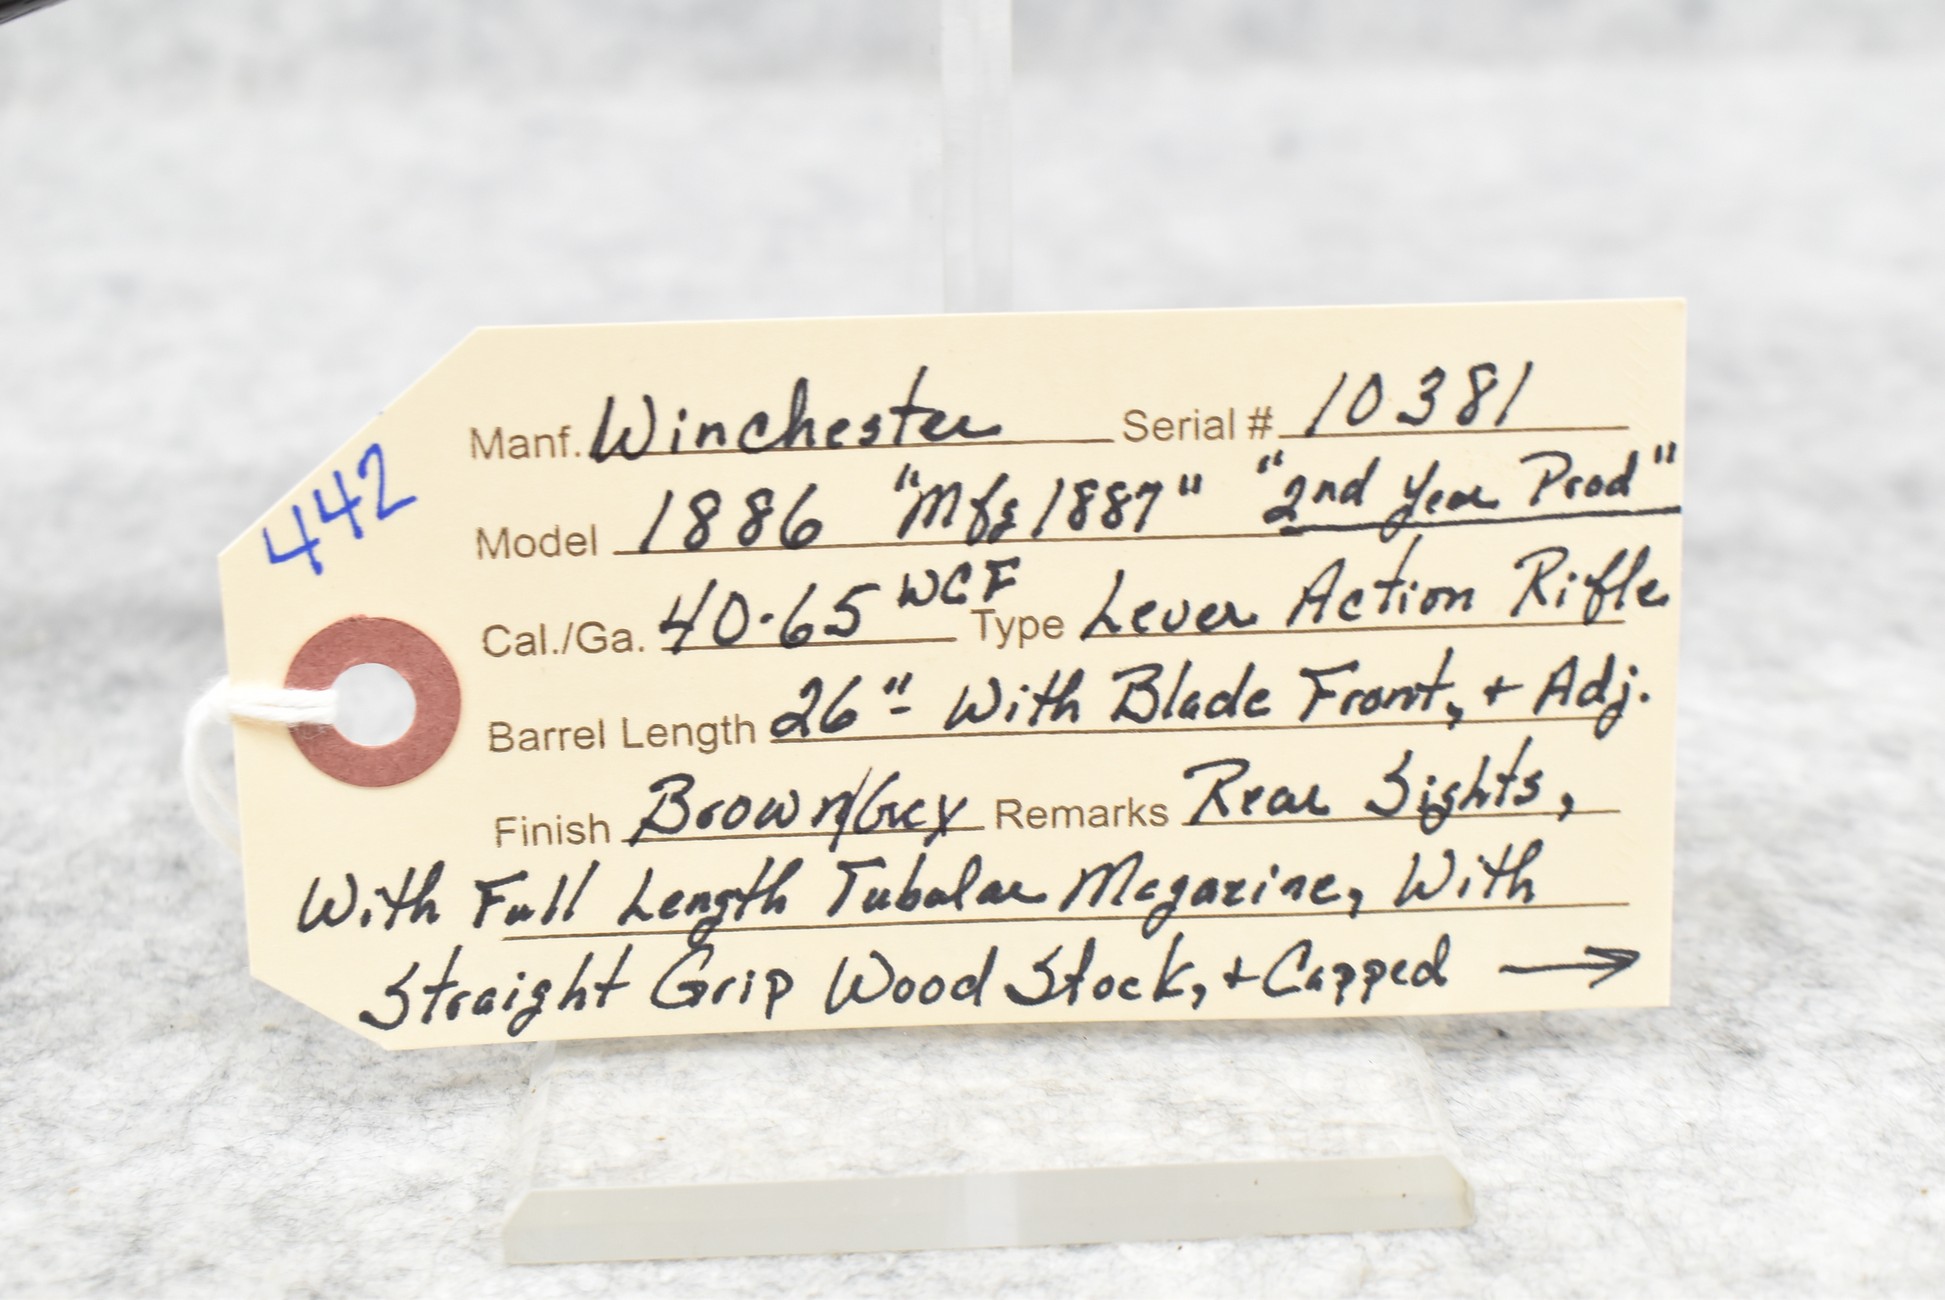 442
Manf. Winchester Serial # 10381
Model 1886 "Mfg 1887" "2nd Year Prod"
Cal./Ga. 40-65 WCF Type Lever Action Rifle
Barrel Length 26" - With Blade Front, + Adj.
Finish Brown/Grey Remarks Rear Sights,
With Full Length Tubular Magazine, With
Straight Grip Wood Stock, + Capped →